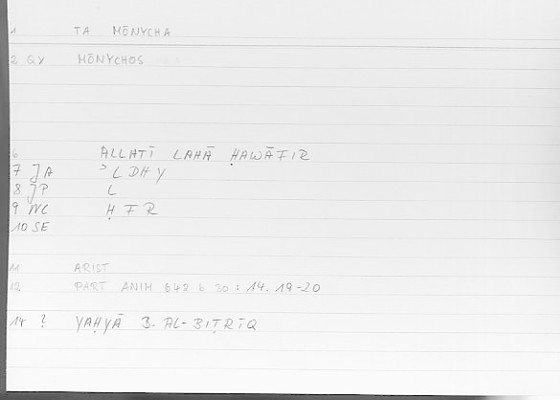 1 TA MŌNYCHA
2 QY MŌNYCHOS
6 ALLATĪ LAHĀ ḤAWĀFIR
7 JA ʾLDHY
8 JP L
9 WC ḤFR
10 SE
11 ARIST
12 PART ANIM 642 b 30 : 14.19-20
14 ? YAḤYĀ B. AL-BIṬRĪQ